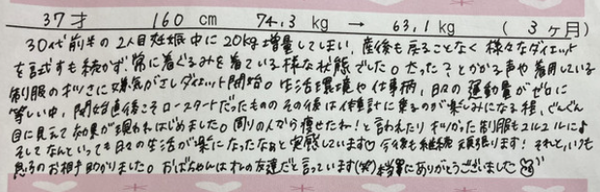 37才 160cm 74.3kg → 63.1kg (3ヶ月)
30代前半の2人目妊娠中に20kg増量してしまい、産後も戻ることなく様々なダイエット
を試すも続かず、常に着ぐるみを着ている様な状態でした。 太った?とかかる声や着用している
制服のキツさに嫌気がさしダイエット開始。生活環境や仕事柄、日々の運動量がゼロに
等しい中、開始直後こそロースタートだったものの その後は体重計に乗るのが楽しみになる程、ぐんぐん
目に見えて効果が現われはじめました。周りの人から痩せたね!と言われたり キツかった制服もユルユルによ
そしてなんといっても日々の生活が楽になったなぁと実感しています♡ 今後も継続頑張ります! それと、いつも
息子のお相手助かりました。おばちゃんはオレの友達だと言っています(笑) 本当にありがとうございました